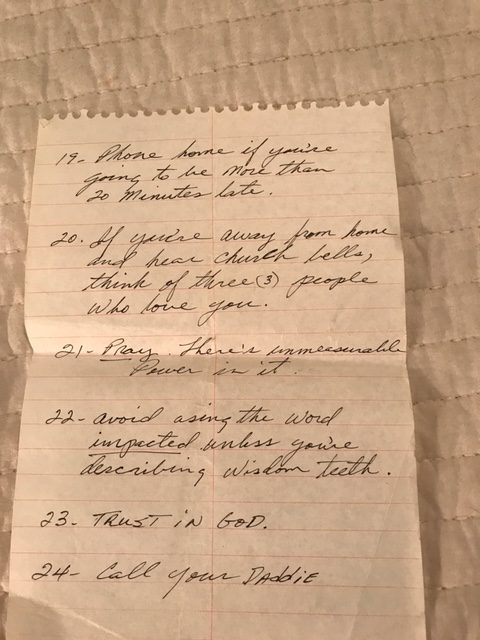 19- Phone home if you're
going to be more than
20 minutes late.
20. If you're away from home
and hear church bells,
think of three (3) people
who love you.
21- Pray. There's unmeasurable
Power in it.
22- avoid using the word
impacted unless you're
describing wisdom teeth.
23- TRUST iN GOD.
24- Call your DADDiE